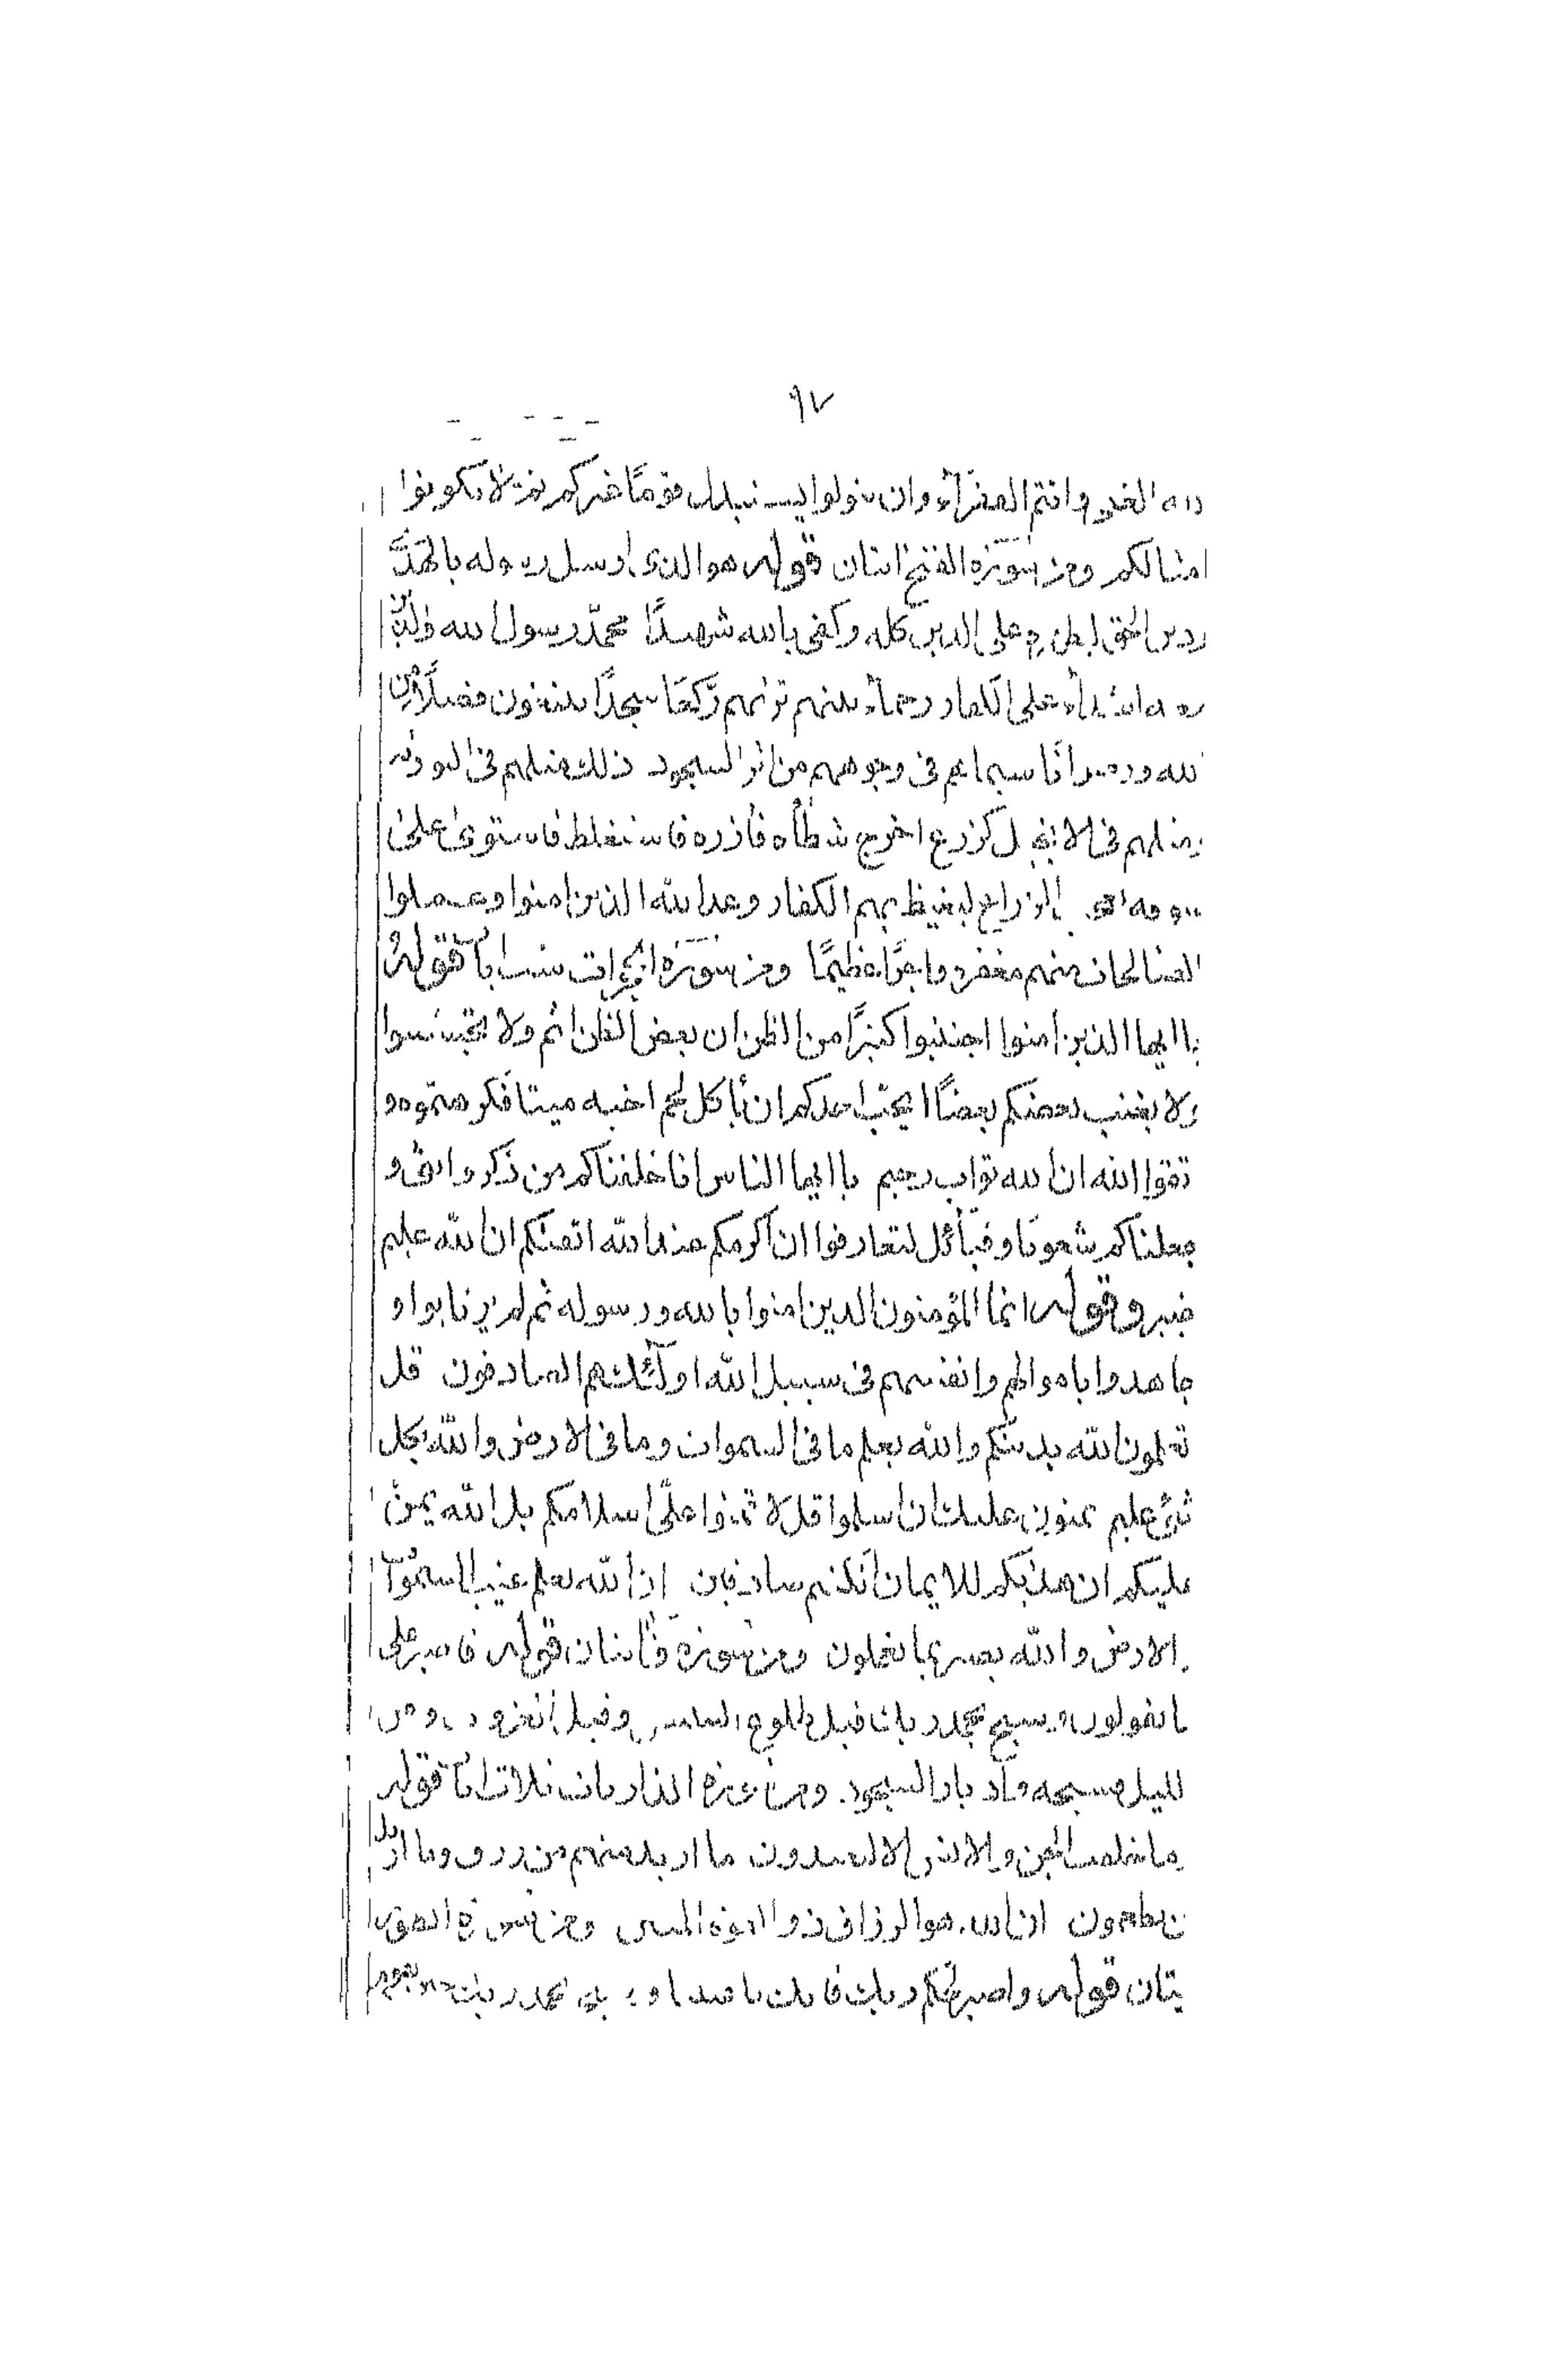 ٩٧
الغنى وانتم الفقرآء وان تتولوا يستبدل قومًا غيركم ثم لا يكونوا
امثالكم ومن سورة الفتح اثنان قوله هو الذى ارسل رسوله بالهدى
ودين الحق ليظهره على الدين كله وكفى بالله شهيدًا محمّد رسول الله والذين
معه اشدآء على الكفار رحمآء بينهم تريهم ركعًا سجدًا يبتغون فضلًا من
الله ورضوانًا سيماهم فى وجوههم من اثر السجود ذلك مثلهم فى التورية
ومثلهم فى الانجيل كزرع اخرج شطأه فآزره فاستغلظ فاستوى على
سوقه يعجب الزراع ليغيظ بهم الكفار وعد الله الذين امنوا وعملوا
الصالحات منهم مغفرة واجرًا عظيمًا ومن سورة الحجرات ست ايات قوله
يا ايها الذين امنوا اجتنبوا كثيرًا من الظن ان بعض الظن اثم ولا تجسسوا
ولا يغتب بعضكم بعضًا ايحب احدكم ان يأكل لحم اخيه ميتا فكرهتموه و
تقوا الله ان الله تواب رحيم يا ايها الناس انا خلقناكم من ذكر وانثى و
جعلناكم شعوبًا وقبآئل لتعارفوا ان اكرمكم عند الله اتقيكم ان الله عليم
خبير وقوله انما المؤمنون الذين امنوا بالله ورسوله ثم لم يرتابوا و
جاهدوا باموالهم وانفسهم فى سبيل الله اولٓئك هم الصادقون قل
تعلمون الله بدينكم والله يعلم ما فى السموات وما فى الارض والله بكل
شئ عليم يمنون عليك ان اسلموا قل لا تمنوا علىّ اسلامكم بل الله يمن
عليكم ان هديكم للايمان ان كنتم صادقين ان الله يعلم غيب السموات
والارض والله بصير بما تعملون ومن سورة ق اثنان قوله فاصبر على
ما يقولون وسبح بحمد ربك قبل طلوع الشمس وقبل الغروب ومن
الليل فسبحه وادبار السجود. ومن سورة الذاريات ثلاث ايات قوله
وما خلقت الجن والانس الا ليعبدون ما اريد منهم من رزق وما اريد
ن يطعمون ان الله هو الرزاق ذو القوة المتين ومن سورة الطور
يتان قوله واصبر لحكم ربك فانك باعيننا وسبح بحمد ربك حين تقوم